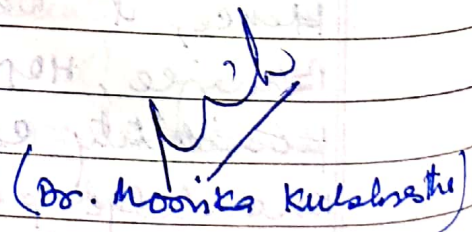 (Dr. Moorika Kulshresthe)